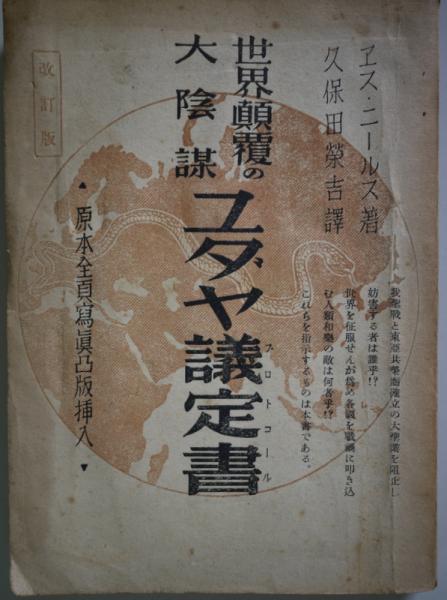 ヱス・ニールス著
久保田榮吉譯
世界顛覆の
大陰謀
ユダヤ議定書
プロトコール
改訂版
原本全頁寫眞凸版挿入
我聖戰と東亞共榮圈確立の大聖業を阻止し
妨害する者は誰乎!?
世界を征服せんが爲め各國を戰禍に叩き込
む人類和樂の敵は何者乎!?
これらを指示するものは本書である。